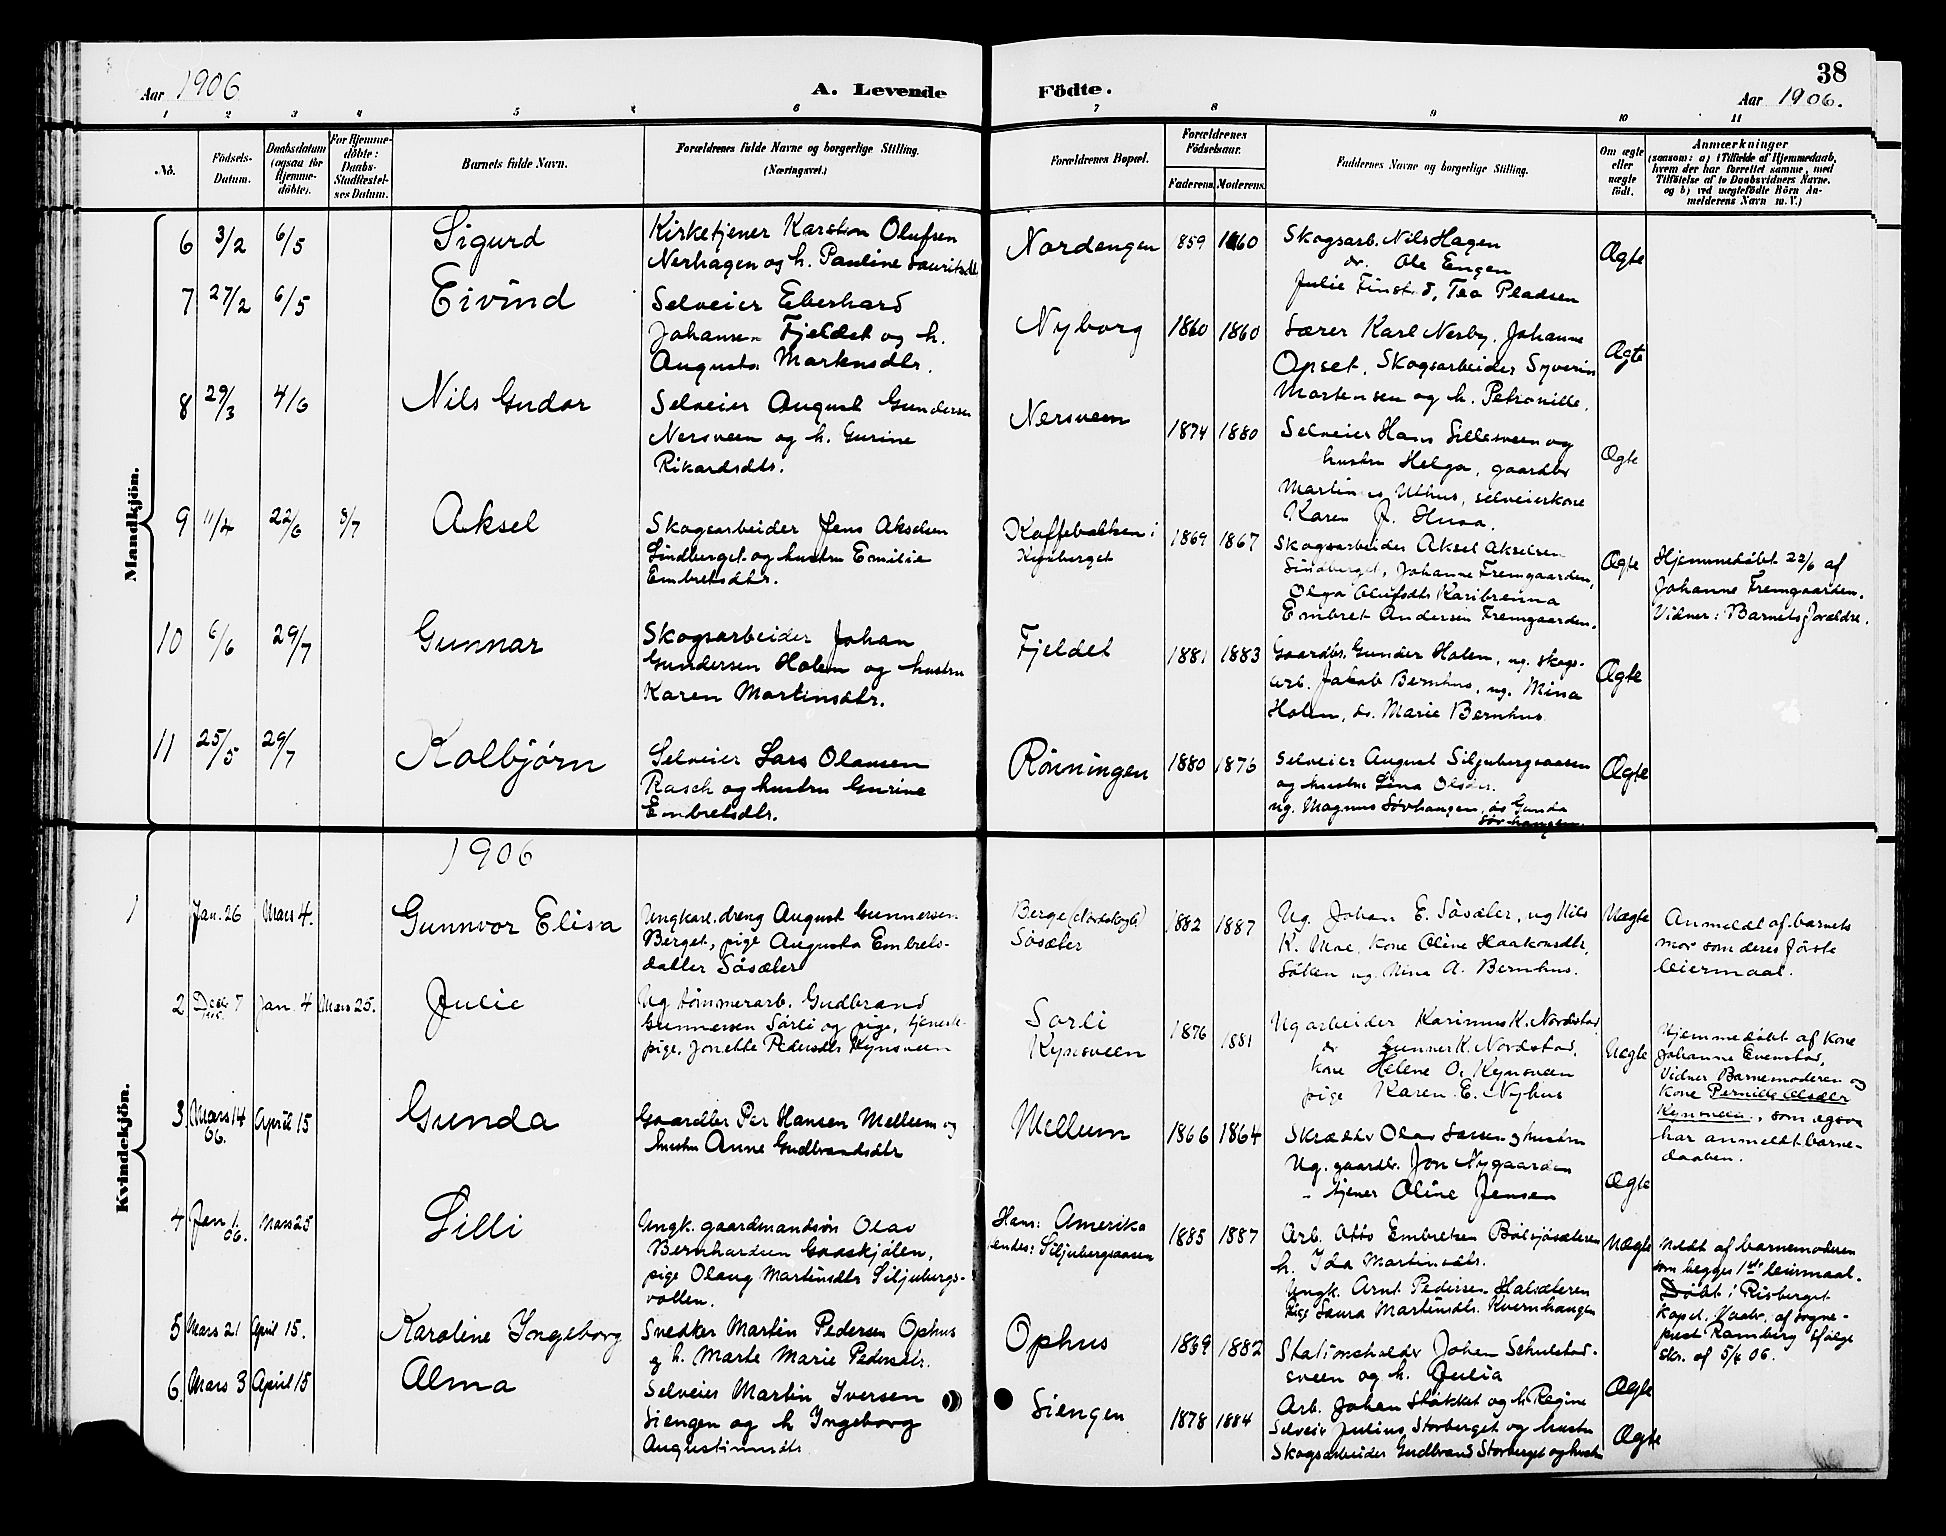 38
Aar 1906
A. Levende Födte.
Aar 1906.
1 2 3 4 5 6 7 8 9 10 11
No.
Födsels-
Datum.
Daabsdatum
(ogsaa for
Hjemme-
döbte).
For Hjemme-
döbte:
Daabs-
Stadfæstel-
ses Datum.
Barnets fulde Navn.
Forældrenes fulde Navne og borgerlige Stilling.
(Næringsvei.)
Forældrenes Bopæl.
Forældrenes
Födselsaar.
Faderens. Moderens.
Faddernes Navne og borgerlige Stilling.
Om ægte
eller
uægte
født.
Anmærkninger
(saasom: a) i Tilfælde af Hjemmedaab,
hvem der har forrettet samme, med
Tilføielse af to Daabsvidners Navne,
og b) ved uægtefödte Börn An-
melderens Navn m. V.)
Mandkjön.
6 3/2 6/5 Sigurd
Kirketjener Karsten Olufsen
Nerhagen og h. Pauline
Nordengen 859 1860
Skogsarb. Nils Hagen
do. Ole Engen
Julie Finst.d, Tea Pladsen
Ægte
7 27/2 6/5 Eivind
Selveier Eberhard
Johansen Fjeldet og h.
Augusta Martensdtr.
Nyborg 1860 1860
Lærer Karl Nesby, Johanne
Opset, Skogsarbeider Syverin
Martensen og h. Petronille.
Ægte
8 29/3 4/6 Nils Gudor
Selveier August Gundersen
Nersveen og h. Gurine
Rikardsdtr.
Nersveen 1874 1880
Selveier Hans Sillesveen og
hustru Helga, gaardbr
Martin Uthus, selveierkone
Karen Husa.
Ægte
9 11/4 22/6 8/7 Aksel
Skogsarbeider Jens Akselsen
Lindberget og hustru Emilie
Embretsdtr.
Kaffebakken i
Kynberget
1869 1867
Skogsarbeider Aksel Akselsen
Lindberget, Johanne Fremgaarden,
Olga Olufsdtr Karibrenna
Embret Andersen Fremgaarden.
Ægte
Hjemmedøbt 22/6 af
Johanne Fremgaarden.
Vidner: Barnets forældre.
10 6/6 29/7 Gunnar
Skogsarbeider Johan
Gundersen Holen og hustru
Karen Martinsdtr.
Fjeldet 1881 1883
Gaardbr. Gunder Holen, ug. skogs-
arb. Jakob Bernhus, ug. Mina
Holen, do. Marie Bernhus
Ægte
11 25/5 29/7 Kolbjørn
Selveier Lars Olausen
Rasch og hustru Gurine
Embretsdtr.
Rönningen 1880 1876
Selveier August Siljubergsaasen
og hustru Lina Olsdtr.
ug. Magnus Sörhaugen, do Gunda
Sörhaugen.
Ægte
1906
Kvindekjön.
1 Jan. 26 Mars 4. Gunnvor Elisa
Ungkarl, dreng August Gunnersen
Berget, pige Augusta Embrets-
datter Søsæter
Berge (Nordskogb)
Søsæter
1882 1887
Ug. Johan E. Søsæter, ug Nils
K. Moe, kone Oline Haakonsdtr,
Søken ug. Nina A. Bernhus.
Uægte
Anmeldt af barnets
mor som deres første
leiermaal.
2 Decbr 7 1905. Jan. 4 Mars 25. Julie
Ug tømmerarb. Gudbrand
Gunnersen Sørli og pige, tjeneste-
pige, Jonette Pedersdtr Kynsveen
Sorli
Kynsveen
1876 1881
Ug arbeider Karinus K. Nordstad
do Gunner K. Nordstad.
kone Helene O. Kynsveen
pige Karen E. Nyhus
Uægte
Hjemmedøbt af kone
Johanne Evenstad,
Vidner Barnemoderen og
kone Pernille Olsdtr
Kynsveen, som ogsaa
har anmeldt barne-
daaben.
3. Mars 14 06. April 15 Gunda
Gaardbr Per Hansen Mellum og
hustru Anne Gudbrandsdtr
Mellum 1866 1864
Skrædder Olav Larsen og hustru
Ug. gaardbr. Jon Nygaarden
- tjener Oline Jensen
Ægte
4 Jan 1. 06. Mars 25 Lilli
Ungk. gaardmandsøn Olav
Bernhardsen Gaaskjölen,
pige Olaug Martinsdtr Siljubergs-
vollen.
Hans: Amerika
endes: Siljubergsaasen
1885 1887
Arb. Otto Embretsen Bölsjösæteren
h. Ida Martinsdtr.
Ungk. Arnt Pedersen Halsæteren
Pige Laura Martinsdtr. Kvernhaugen
Uægte
Meldt af barnemoderen
som begges 1ste leiermaal.
Døbt i Risberget
kapel, Vaaler, af sogne-
prest Ramberg ifølge
skr. af 5/4 06.
5 Mars 21 April 15. Karoline Ingeborg
Snedker Martin Pedersen Ophus
og h. Marte Marie Pedersdtr.
Ophus 1869 1882
Stationsholder Johan Schulstad-
sveen og h. Julia
Ægte
6. Mars 3 April 15 Alma
Selveier Martin Iversen
Siengen og h Ingeborg
Augustinusdtr.
Siengen 1878 1884
Arb. Johan Støkket og h. Regine
Selveier Julius Storberget og hustru
Skogsarbeider Gudbrand Storberget og hustru
Ægte